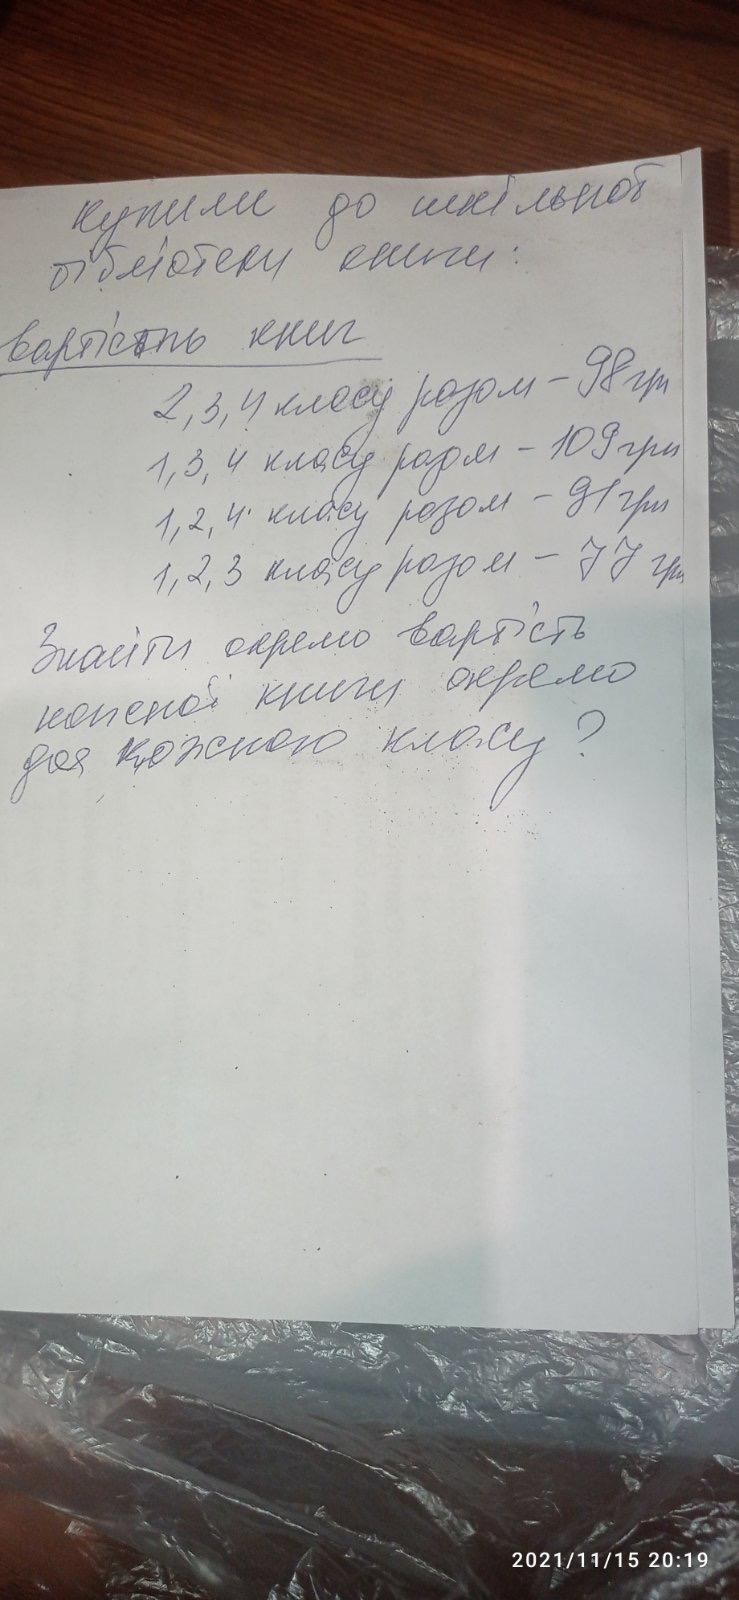 купили до шкільної
бібліотеки книги:
вартість книг
2,3,4 класу разом – 98 грн
1,3,4 класу разом – 109 грн
1,2,4 класу разом – 91 грн
1,2,3 класу разом – 77 грн
Знайти окремо вартість
кожної книги окремо
для кожного класу?
2021/11/15 20:19